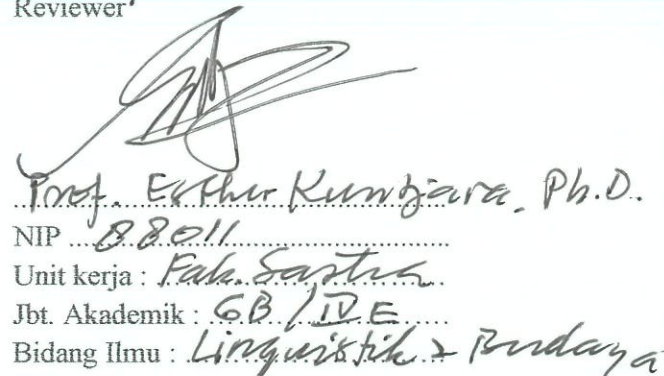 Reviewer
Prof. Esther Kuntjara, Ph.D.
NIP ...88011...
Unit kerja : Fak. Sastra
Jbt. Akademik : GB / IV E
Bidang Ilmu : Linguistik & Budaya